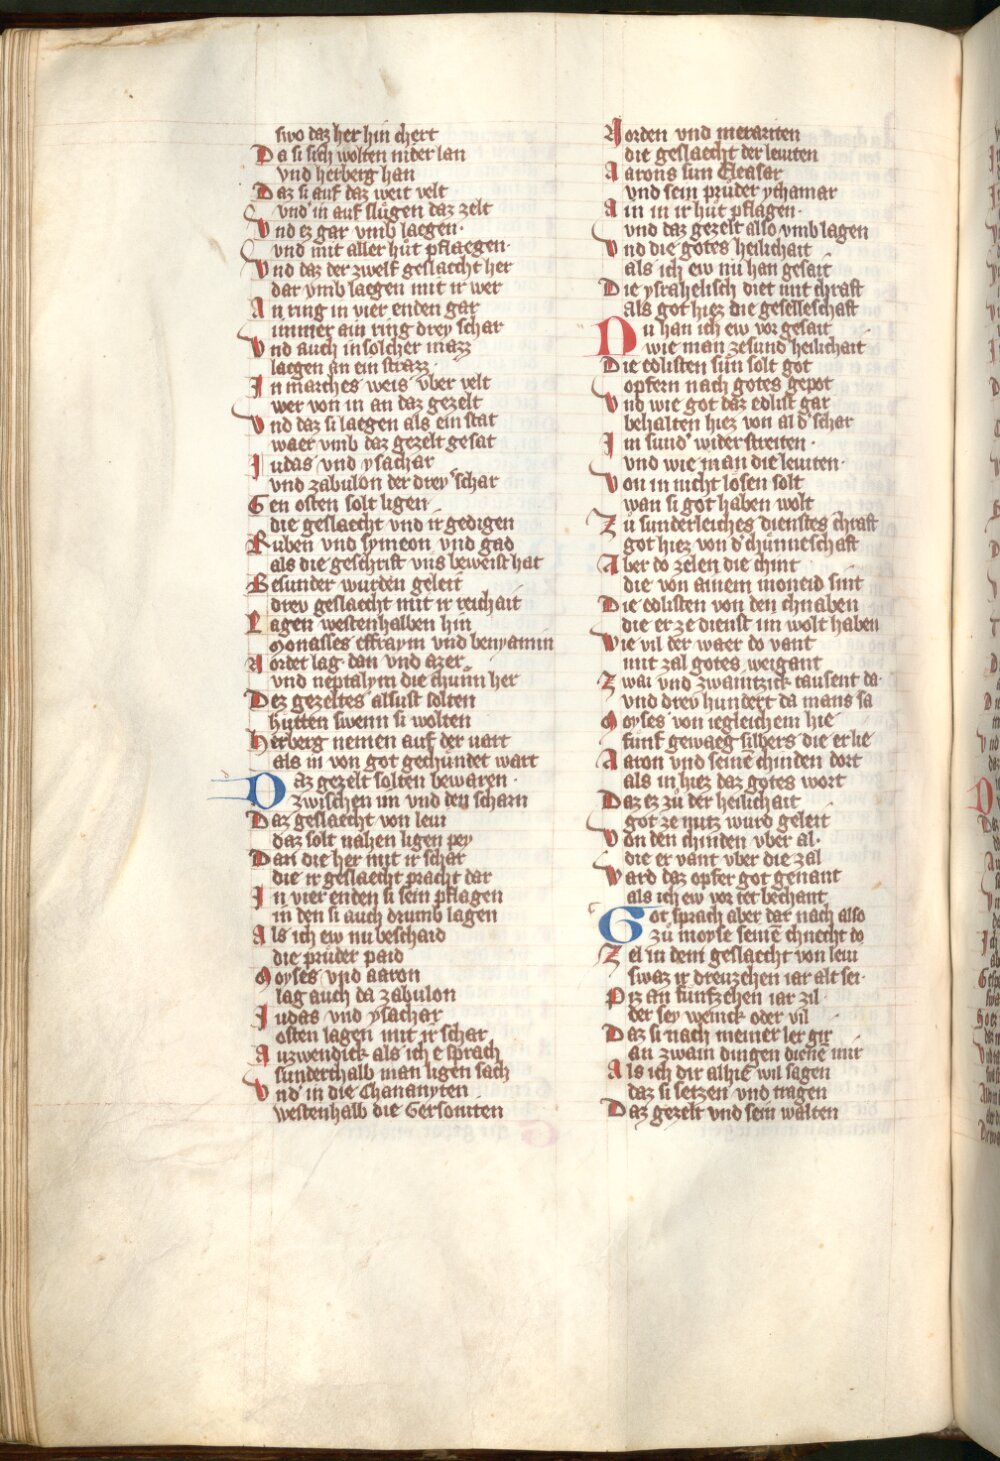 swo daz her hin chert
Da si sich wolten nider lan
vnd herberg han
Daz si auf daz weit velt
vnd in auf slůgen daz zelt
Vnd ez gar vmb laegen·
vnd mit aller hůt pflaegen·
Vnd daz der zwelf geslaecht her
dar vmb laegen mit ir wer
An ring in vier enden gar
immer ain ring drey schar
Vnd auch in solcher mazz
laegen an ein strazz·
In marches weis vber velt
wer von in an daz gezelt
Vnd daz si laegen als ein stat
waer vmb daz gezelt gesat
Iudas vnd ysachar
vnd zabulon der drey schar
Gen osten solt ligen
die geslaecht vnd ir gedigen
Ruben vnd symeon vnd gad
als die geschrift vns beweist hat
Besunder wurden geleit
drev geslaecht mit ir reichait
Lagen westenhalben hin
Monasses effraym vnd benyamin
Nordet lag dan vnd azer
vnd neptalym die chůnn her
Dez gezeltes alsust solten
hutten swenn si wolten
Herberg nemen auf der vart
als in von got gechundet wart
Daz gezelt solten bewaren·
zwischen im vnd den scharn
Daz geslaecht von leui
daz solt nahen ligen pey
Dan die her mit ir schar
die ir geslaecht pracht dar
In vier enden si sein pflagen
in den si auch drumb lagen
Als ich ew nu beschaid
die prüder paid
Moyses vnd aaron
lag auch da zabulon
Iudas vnd ysachar
osten lagen mit ir schar
Auzwendick als ich e sprach
sunderthalb man ligen sach
Vnd in die Chananyten
westenhalb die Gersoniten
Norden vnd merariten
die geslaecht der leuiten
Aarons sun Eleasar
vnd sein prüder ychamar
Ain in ir hůt pflagen·
vnd daz gezelt also vmb lagen
Vnd die gotes heilichait
als ich ew nu han gesait
Die ysrahelisch diet mit chraft
als got hiez die geselleschaft
Nu han ich ew vor gesait
wie man zesund heilichait
Die edlisten sün solt got
opfern nach gotes gepot
Vnd wie got daz edlist gar
behalten hiez von al d' schar
Im sund' wider streiten·
vnd wie man die leuiten·
Von in nicht lösen solt
wan si got haben wolt
Zů sunderleiches dienstes chraft
got hiez von d' chünneschaft
Aber do zelen die chint
die von ainem moneid sint
Die edlisten von den chnaben
die er ze dienst im wolt haben
Wie vil der waer do vant
mit zal gotes weigant
Zwai vnd zwaintzick tausent da·
vnd drev hundert da mans sa
Moyses von iegleichem hie
fünf gewaeg silbers die er lie
Aaron vnd seinē chinden dort
als in hiez daz gotes wort
Daz ez zů der heilichait
got ze nutz wurd geleit
Von den chinden vber al·
die er vant vber die zal
Ward daz opfer got genant
als ich ew vor tet bechant
Got sprach aber dar nach also
zů moyse seinē chnecht do
Zel in dem geslaecht von leui
swaz ir dreuzehen iar alt sei·
Piz an fünfzehen iar zil
der sey wenick oder vil
Daz si nach meiner ler gir
an zwain dingen diene mir
Als ich dir alhie wil sagen
daz si setzen vnd tragen
Daz gezelt vnd sein walten